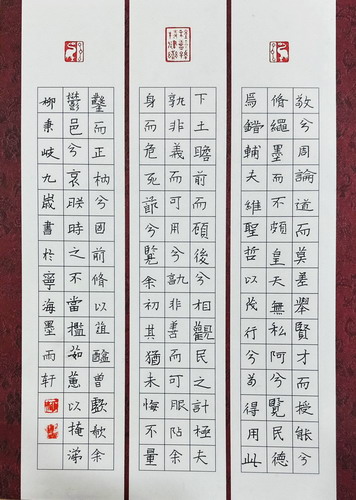 敬兮周論道而莫差舉賢才而授能兮
脩繩墨而不頗皇天無私阿兮覽民德
焉錯輔夫維聖哲以茂行兮苟得用此
下土瞻前而顧後兮相觀民之計極夫
孰非義而可用兮孰非善而可服阽余
身而危死節兮覽余初其猶未悔不量
鑿而正枘兮固前脩以菹醢曾歔欷余
鬱邑兮哀朕時之不當攬茹蕙以掩涕
柳秉岐九歲書於寧海墨雨軒